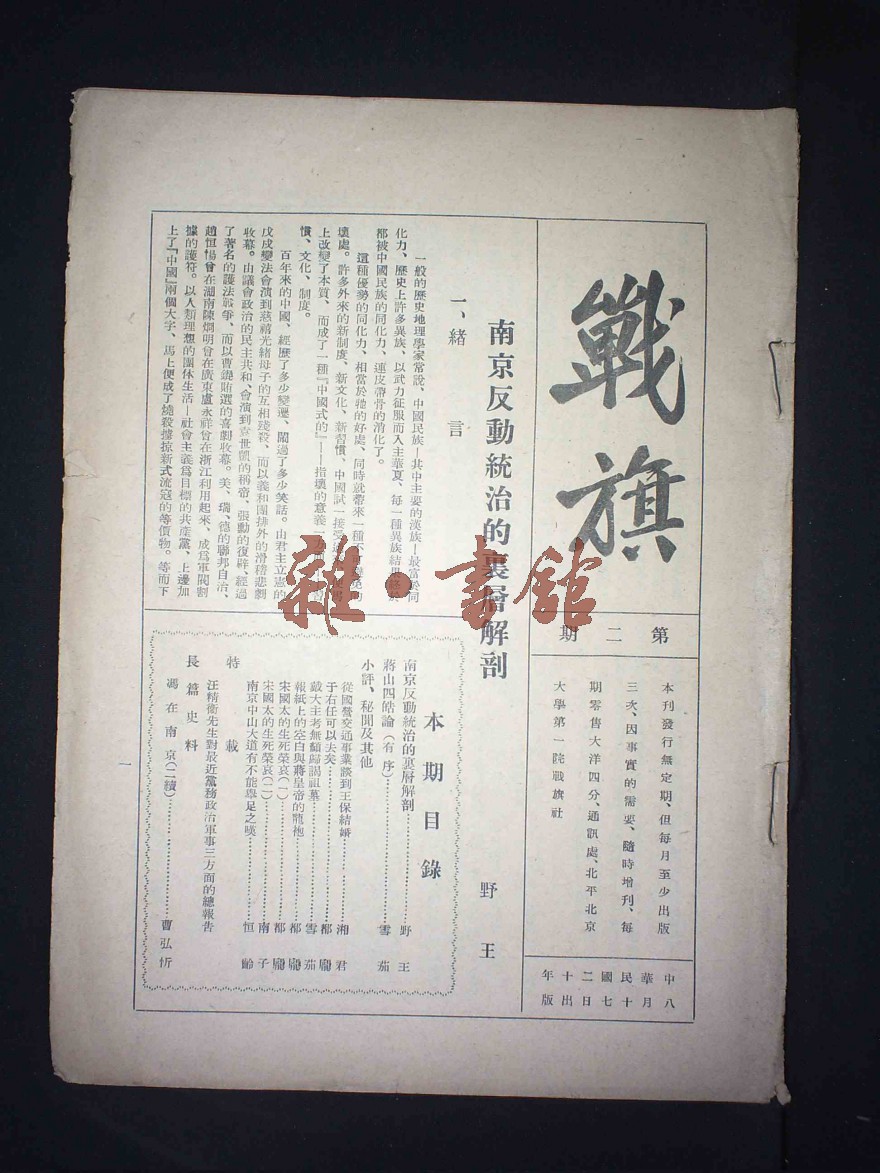 戰旗
第二期
本刊發行無定期、但每月至少出版
三次、因事實的需要、隨時增刊、每
期零售大洋四分、通訊處、北平北京
大學第一院戰旗社
中華民國二十年
八月十七日出版
南京反動統治的裏層解剖
野王
一、緒言
一般的歷史地理學家常說、中國民族—其中主要的漢族—最富於同
化力、歷史上許多異族、以武力征服而入主華夏、每一種異族結果終於
都被中國民族的同化力、連皮帶骨的消化了。
這種優勢的同化力、相當於牠的好處、同時就帶來一種不可避免的
壞處。許多外來的新制度、新文化、新習慣、中國試一接受
上改變了本質、而成了一種『中國式的』——指壞的意義一方面
慣、文化、制度。
百年來的中國、經歷了多少變遷、鬧過了多少笑話。由君主立憲的
戊戌變法會演到慈禧光緒母子的互相殘殺、而以義和團排外的滑稽悲劇
收幕。由議會政治的民主共和、會演到袁世凱的稱帝、張勳的復辟、經過
了著名的護法戰爭、而以曹錕賄選的喜劇收幕。美、瑞、德的聯邦自治、
趙恒惕曾在湖南陳烱明曾在廣東盧永祥曾在浙江利用起來、成爲軍閥割
據的護符。以人類理想的團体生活—社會主義爲目標的共產黨、上邊加
上了『中國』兩個大字、馬上便成了燒殺擄掠新式流寇的等價物。等而下
本期目錄
南京反動統治的裏層解剖……野王
蔣山四皓論（有序）……雪茄
小評、秘聞及其他
從國營交通事業談到王保結婚……湘君
于右任可以去矣……都廳
戴大主考無顏歸謁祖墓……雪茄
報紙上的空白與蔣皇帝的龍袍……都廳
宋國太的生死榮哀（一）……都廳
宋國太的生死榮哀（二）……南子
南京中山大道有不能舉足之嘆……恒齡
特載
汪精衛先生對最近黨務政治軍事三方面的總報告
長篇史料
馮在南京（二續）……曹弘忻
一
雜·書館